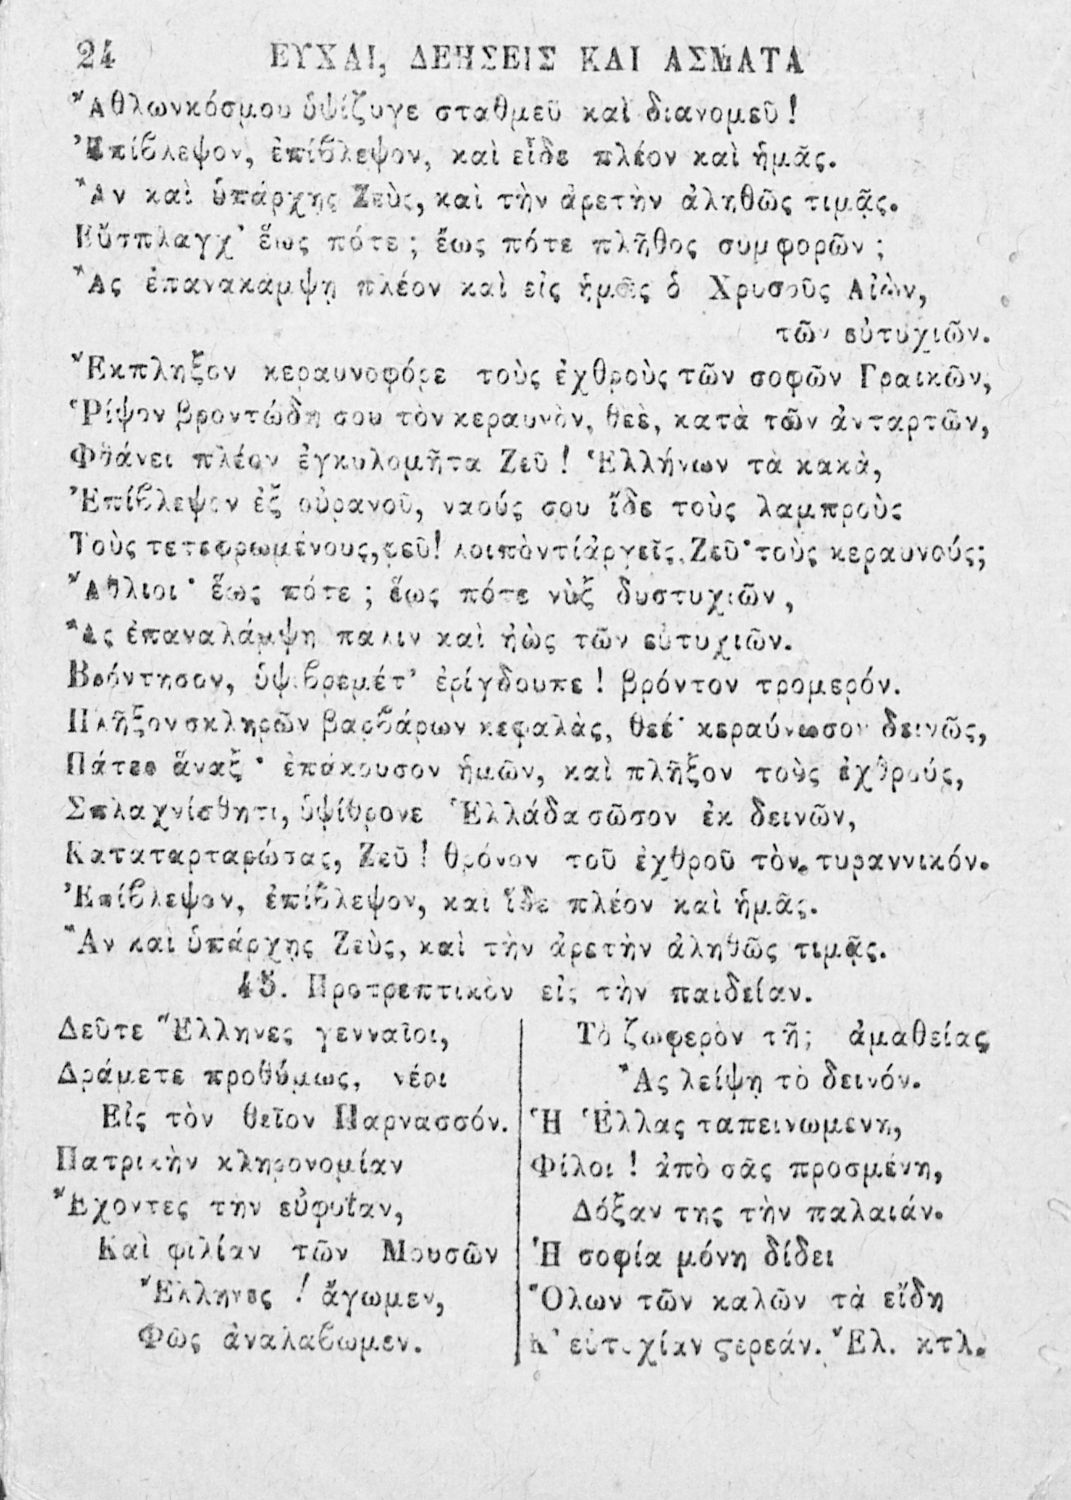 24 ΕΥΧΑΙ, ΔΕΗΣΕΙΣ ΚΑΙ ΑΣΜΑΤΑ
Ἄθλων κόσμου ὑψίζυγε σταθμεῦ καὶ διανομεῦ!
Ἐπίβλεψον, ἐπίβλεψον, καὶ εἶδε πλέον καὶ ἡμᾶς.
Ἂν καὶ ὑπάρχῃς Ζεὺς, καὶ τὴν ἀρετὴν ἀληθῶς τιμᾷς.
Εὔσπλαγχ' ἕως πότε; ἕως πότε πλῆθος συμφορῶν;
Ἂς ἐπανακάμψῃ πλέον καὶ εἰς ἡμᾶς ὁ Χρυσοῦς Αἰὼν,
τῶν εὐτυχιῶν.
Ἔκπληξον κεραυνοφόρε τοὺς ἐχθροὺς τῶν σοφῶν Γραικῶν,
Ῥίψον βροντώδη σου τὸν κεραυνὸν, θεὲ, κατὰ τῶν ἀνταρτῶν,
Φθάνει πλέον ἐγκυλομῆτα Ζεῦ! Ἑλλήνων τὰ κακὰ,
Ἐπίβλεψον ἐξ οὐρανοῦ, ναούς σου ἴδε τοὺς λαμπροὺς
Τοὺς τετεφρωμένους, φεῦ! λοιπὸν τί ἀργεῖς, Ζεῦ· τοὺς κεραυνούς;
Ἄθλιοι· ἕως πότε; ἕως πότε νὺξ δυστυχιῶν,
Ἂς ἐπαναλάμψῃ πάλιν καὶ ἠὼς τῶν εὐτυχιῶν.
Βρόντησον, ὑψιβρεμέτ' ἐρίγδουπε! βρόντον τρομερόν.
Πλῆξον σκληρῶν βαρβάρων κεφαλὰς, θεέ· κεραύνωσον δεινῶς,
Πάτερ ἄναξ· ἐπάκουσον ἡμῶν, καὶ πλῆξον τοὺς ἐχθρούς,
Σπλαχνίσθητι, ὑψίθρονε Ἑλλάδα σῶσον ἐκ δεινῶν,
Καταταρταρώσας, Ζεῦ! θρόνον τοῦ ἐχθροῦ τὸν τυραννικόν.
Ἐπίβλεψον, ἐπίβλεψον, καὶ ἴδε πλέον καὶ ἡμᾶς.
Ἂν καὶ ὑπάρχῃς Ζεὺς, καὶ τὴν ἀρετὴν ἀληθῶς τιμᾷς.
45. Προτρεπτικὸν εἰς τὴν παιδείαν.
Δεῦτε Ἕλληνες γενναῖοι,
Δράμετε προθύμως, νέοι
Εἰς τὸν θεῖον Παρνασσόν.
Πατρικὴν κληρονομίαν
Ἔχοντες τὴν εὐφυΐαν,
Καὶ φιλίαν τῶν Μουσῶν
Ἕλληνες! ἄγωμεν,
Φῶς ἀναλάβωμεν.
Τὸ ζωφερὸν τῆς ἀμαθείας
Ἂς λείψῃ τὸ δεινόν.
Ἡ Ἑλλὰς ταπεινωμένη,
Φίλοι! ἀπὸ σᾶς προσμένη,
Δόξαν της τὴν παλαιάν.
Ἡ σοφία μόνη δίδει
Ὅλων τῶν καλῶν τὰ εἴδη
Κ' εὐτυχίαν ϛερεάν. Ἕλ. κτλ.